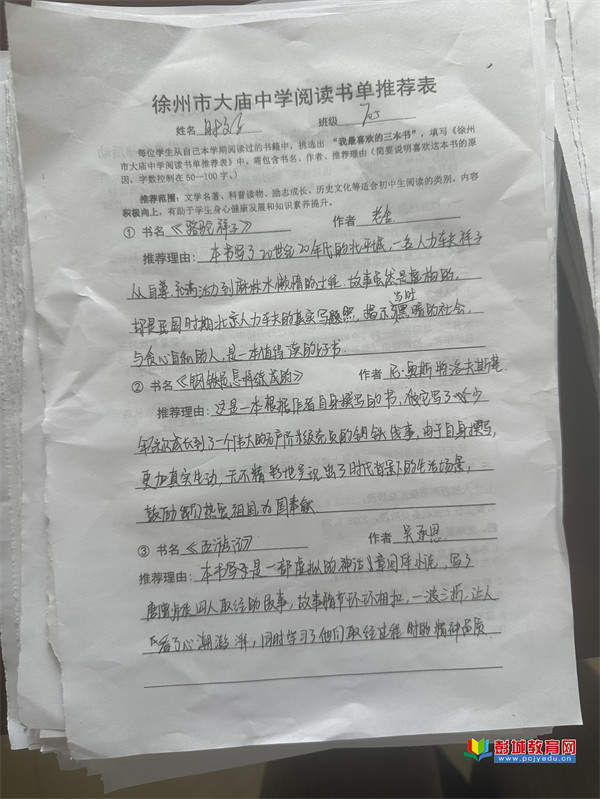 徐州市大庙中学阅读书单推荐表
姓名 班级 705
每位学生从自己本学期阅读过的书籍中，挑选出 “我最喜欢的三本书”，填写《徐州
市大庙中学阅读书单推荐表》中，需包含书名、作者、推荐理由（简要说明喜欢这本书的原
因，字数控制在 50—100 字。）
推荐范围：文学名著、科普读物、励志成长、历史文化等适合初中生阅读的类别，内容
积极向上，有助于学生身心健康发展和知识素养提升。
① 书名《骆驼祥子》 作者 老舍
推荐理由：本书写了20世纪20年代的北平城，一名人力车夫祥子
从自尊 充满活力到麻木 懒惰的 故事虽然是虚构的，
民国时期北京人力车夫的真实写照，揭示当时黑暗的社会，
与贪心自私的人，是一本值得读的好书。
② 书名《钢铁是怎样炼成的》 作者 尼·奥斯特洛夫斯基
推荐理由：这是一本根据作者自身撰写的书，他写了 少
年 成长到了一个伟大的无产阶级党员的钢铁 故事，由于自身撰写，
更加真实生动，无不精彩地 说出了时代背景下的生活场景，
鼓励我们热爱祖国为国奉献
③ 书名《西游记》 作者 吴承恩
推荐理由：本书写于是一部虚拟的神话章回体小说，写了
唐僧师徒四人取经的故事，故事情节环环相扣，一波三折，让人
看了心潮澎湃，同时学习了他们取经过程 时的精神品质
彭城教育网
www.pcjyedu.cn